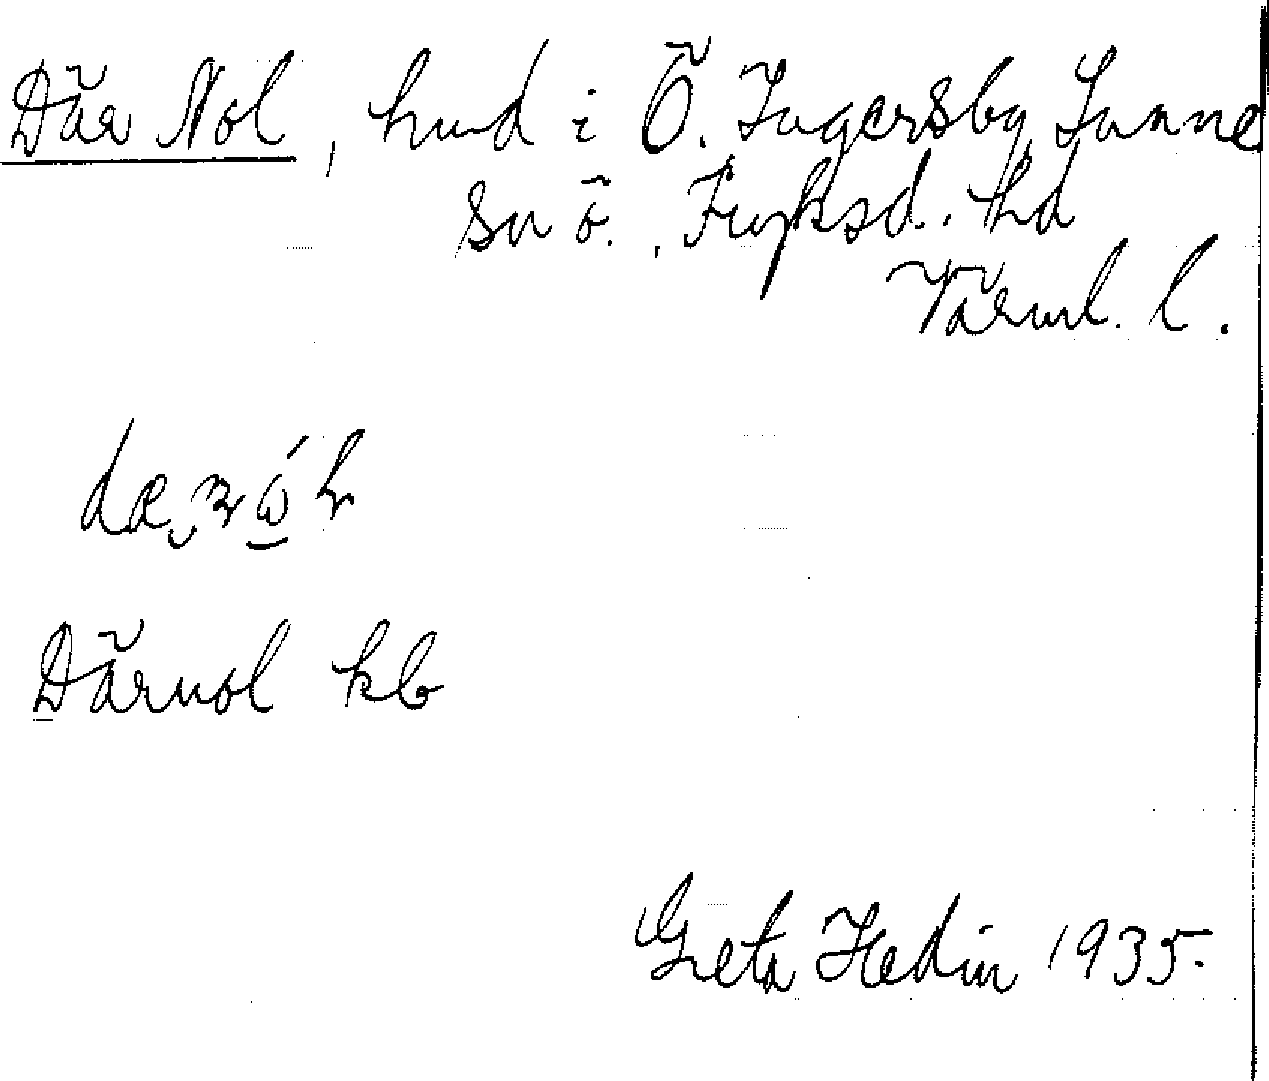 Där Nol, hund i Ö. Ingersby, Sunne
sn ö., Fryksd. hd
Värml. l.
Därnol kb
Greta Hedin 1935.